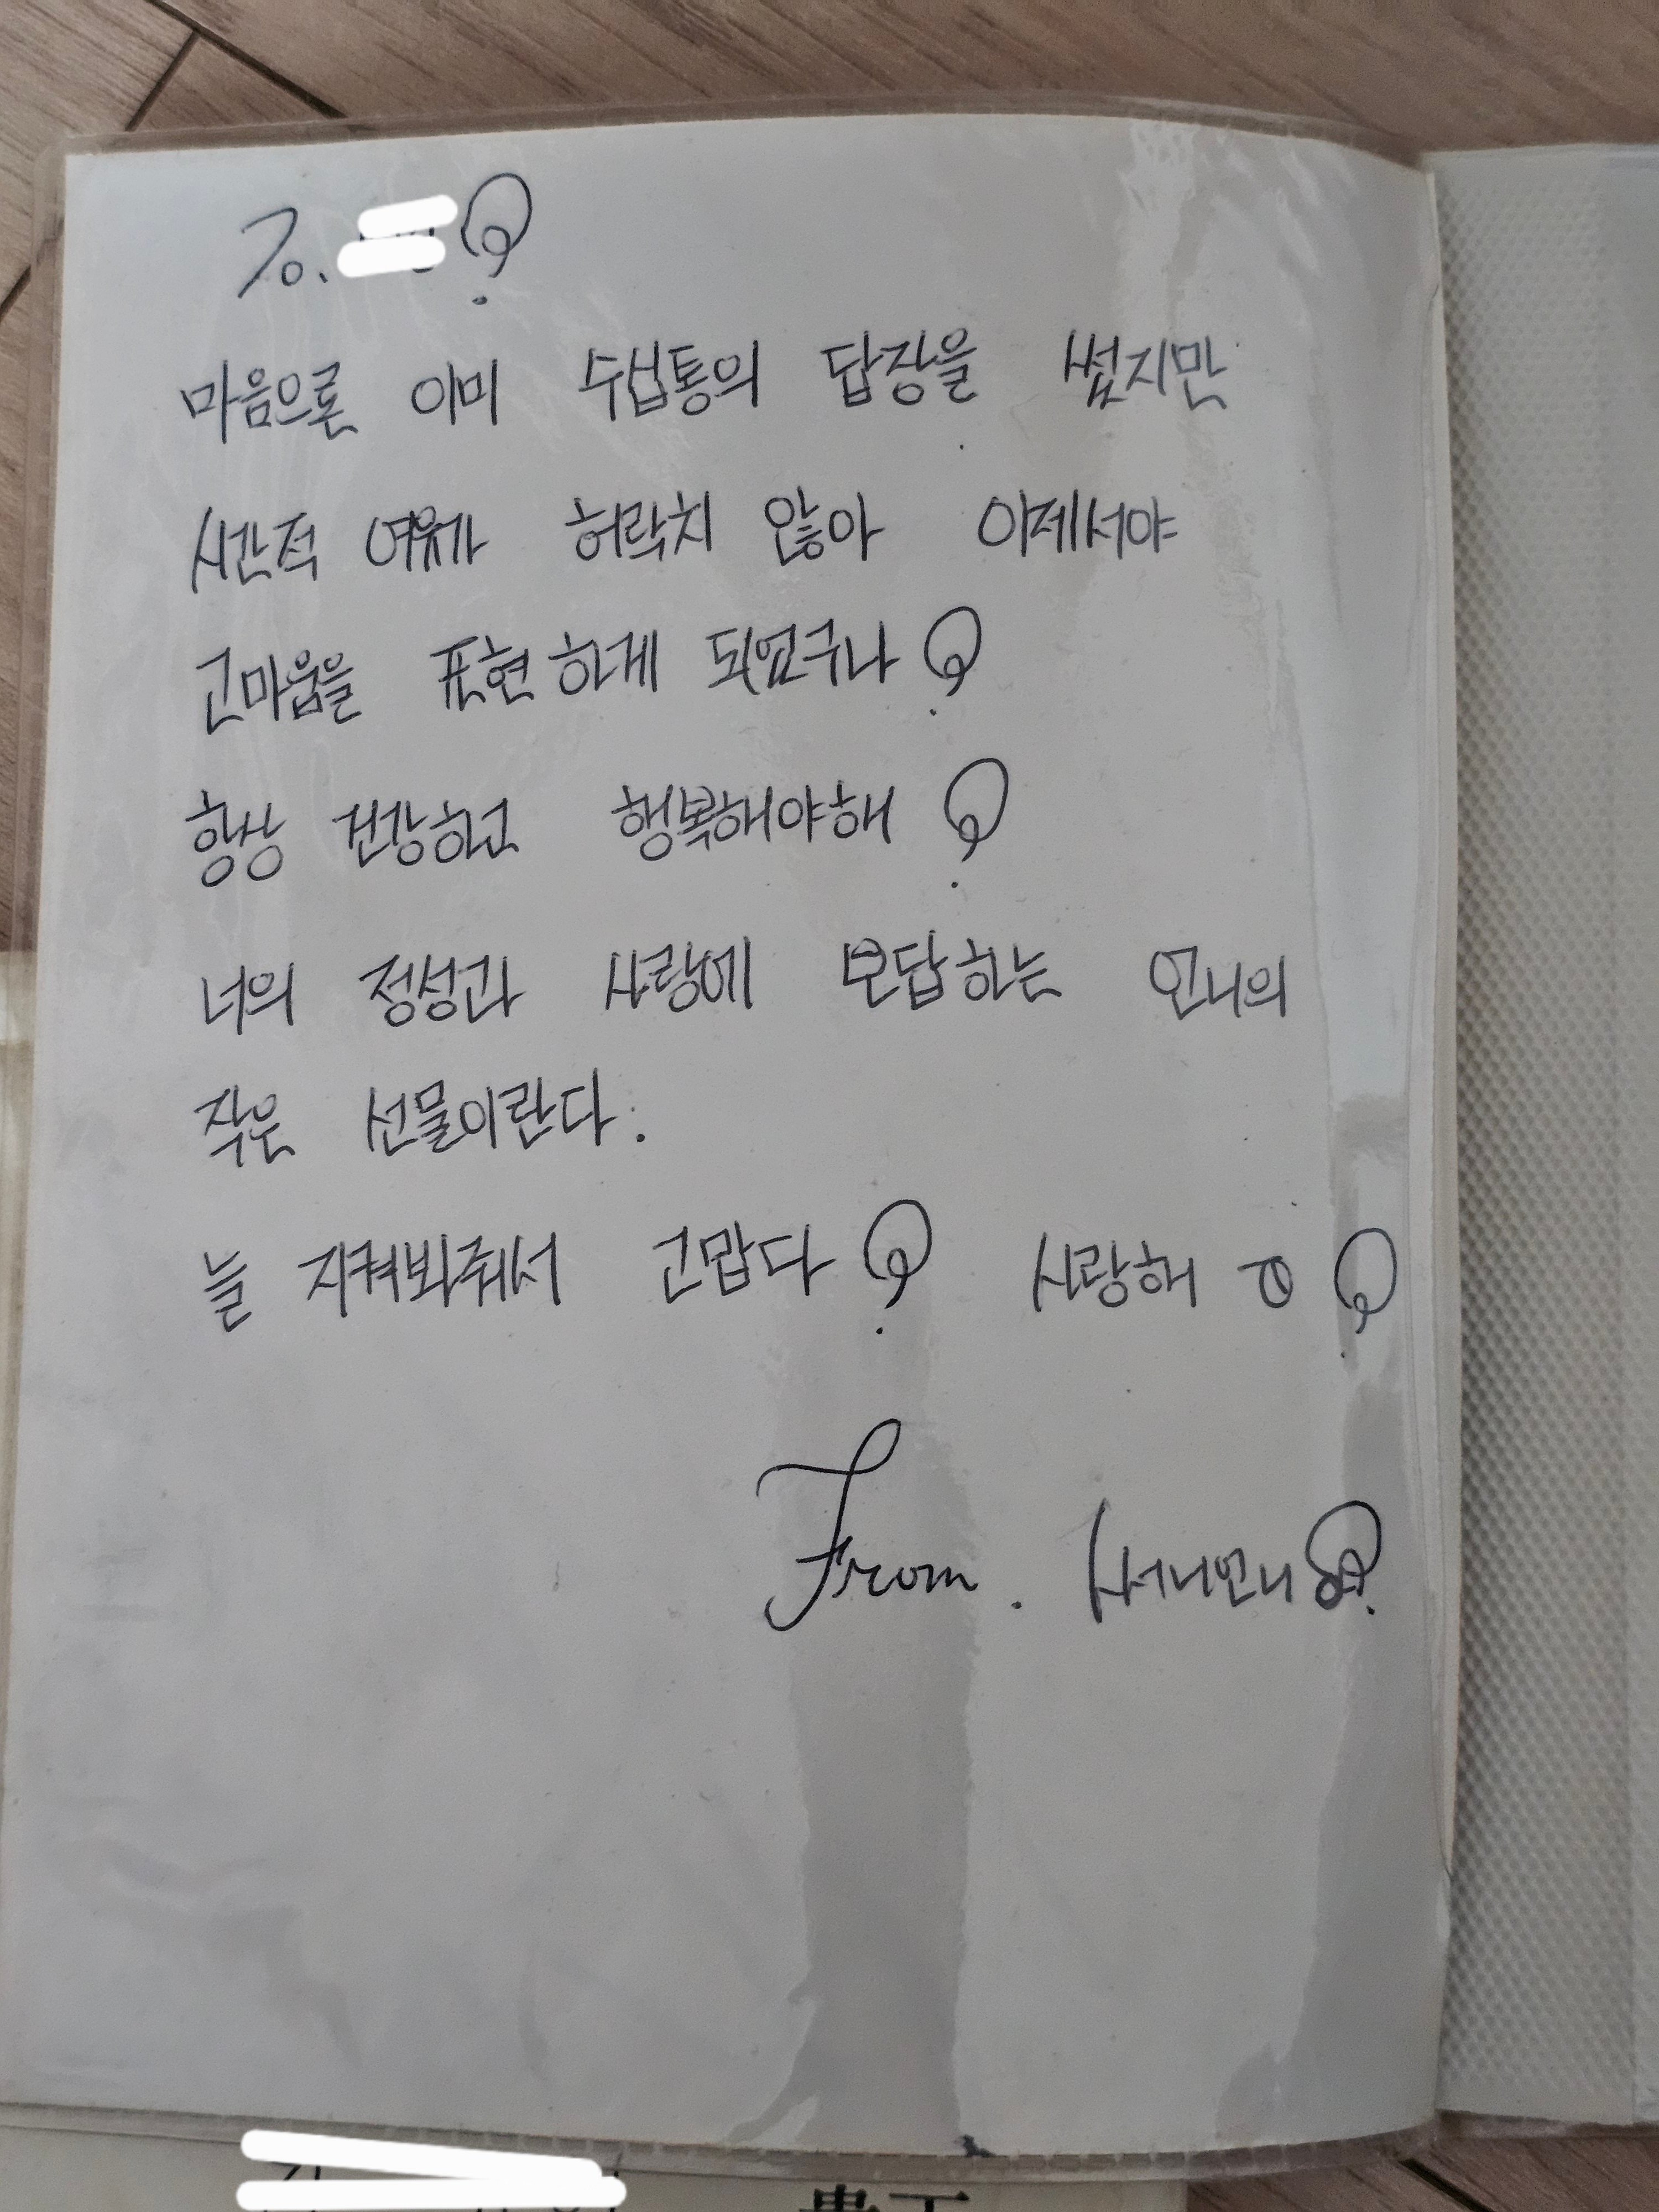 To.
마음으론 이미 수십통의 답장을 썼지만
시간적 여유가 허락치 않아 이제서야
고마움을 표현하게 되었구나
항상 건강하고 행복해야해
너의 정성과 사랑에 보답하는 언니의
작은 선물이란다.
늘 지켜봐줘서 고맙다 사랑해
From. 써니언니